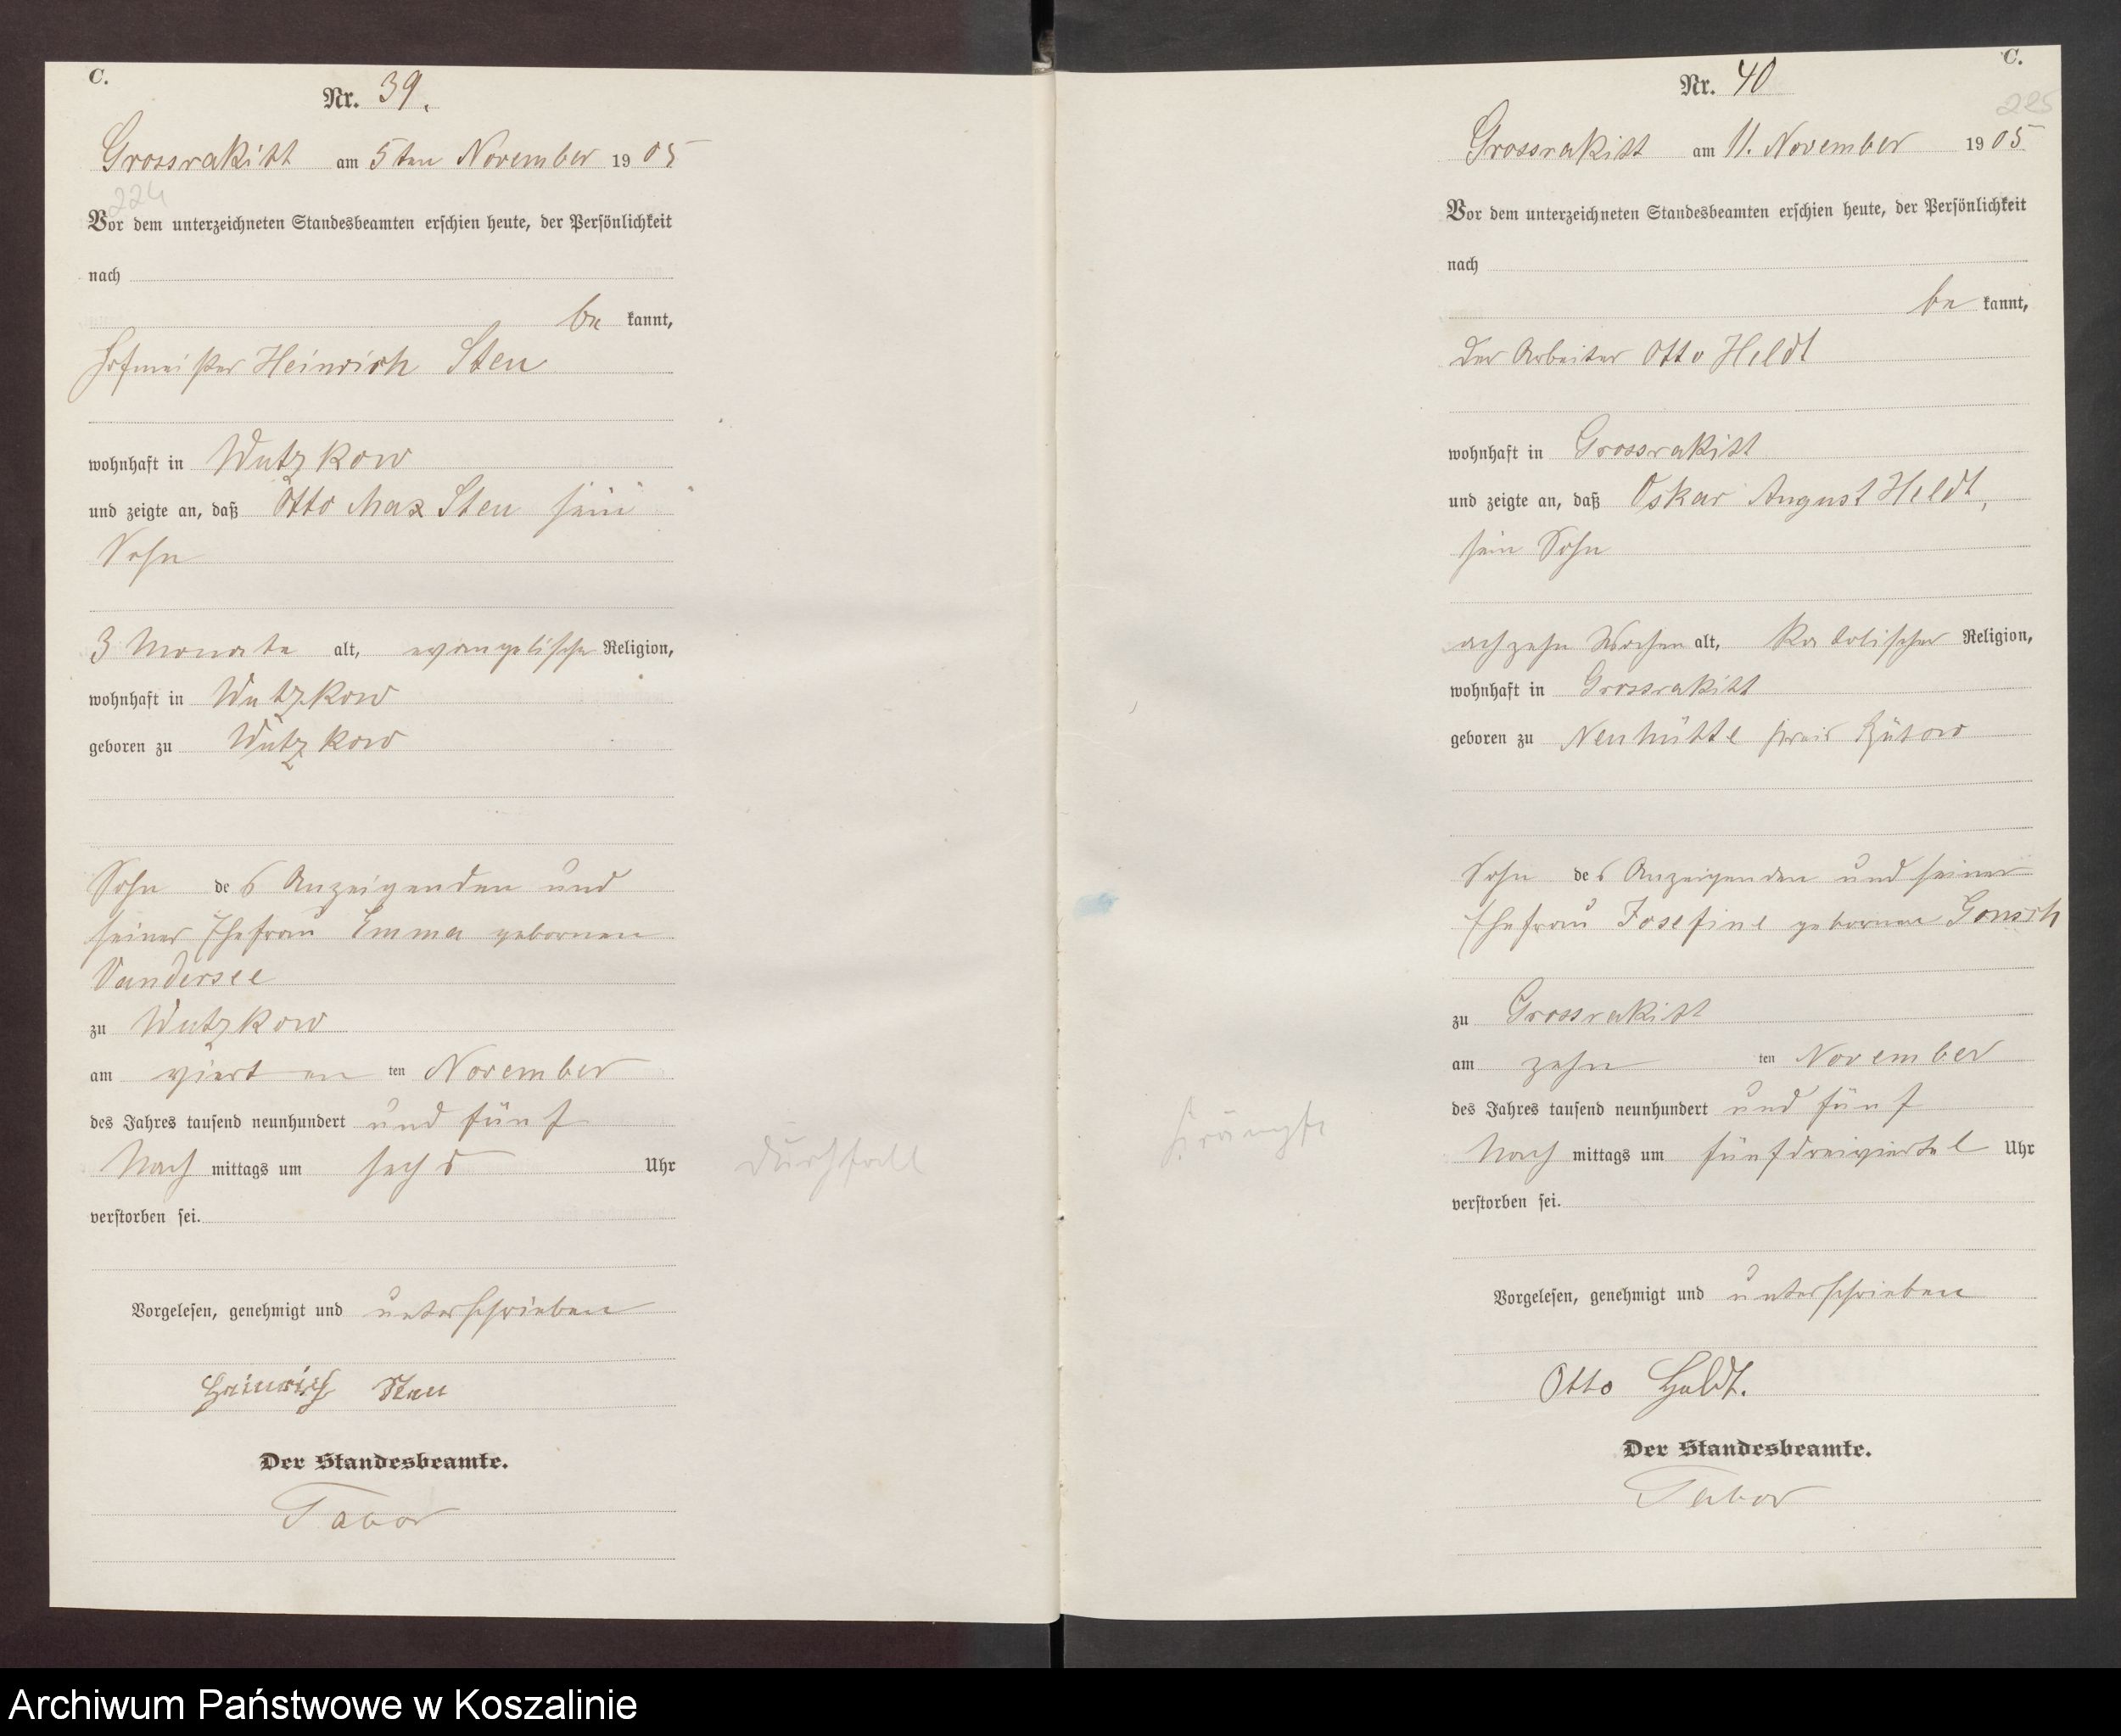 C.
Nr. 39.
Grossrakitt am 5ten November 1905
224
Vor dem unterzeichneten Standesbeamten erschien heute, der Persönlichkeit
nach
be kannt,
Hofmeister Heinrich Sten
wohnhaft in Wutzkow
und zeigte an, daß Otto Max Sten sein
Sohn
3 Monate alt, evangelische Religion,
wohnhaft in Wutzkow
geboren zu Wutzkow
Sohn des Anzeigenden und
seiner Ehefrau Emma gebornen
Vandersee
zu Wutzkow
am vierten ten November
des Jahres tausend neunhundert und fünf
Nach mittags um sechs Uhr
verstorben sei.
Durchfall
Vorgelesen, genehmigt und unterschrieben
Heinrich Sten
Der Standesbeamte.
Tabor
C.
Nr. 40
225
Grossrakitt am 11. November 1905
Vor dem unterzeichneten Standesbeamten erschien heute, der Persönlichkeit
nach
be kannt,
der Arbeiter Otto Heldt
wohnhaft in Grossrakitt
und zeigte an, daß Oskar August Heldt,
sein Sohn
achzehn Wochen alt, katolischer Religion,
wohnhaft in Grossrakitt
geboren zu Neuhütte Kreis Bütow
Sohn des Anzeigenden und seiner
Ehefrau Josefine gebornen Gonsch
zu Grossrakitt
am zehn ten November
des Jahres tausend neunhundert und fünf
Nach mittags um fünfdreiviertel Uhr
verstorben sei.
Krämpfe
Vorgelesen, genehmigt und unterschrieben
Otto Heldt.
Der Standesbeamte.
Tabor
Archiwum Państwowe w Koszalinie